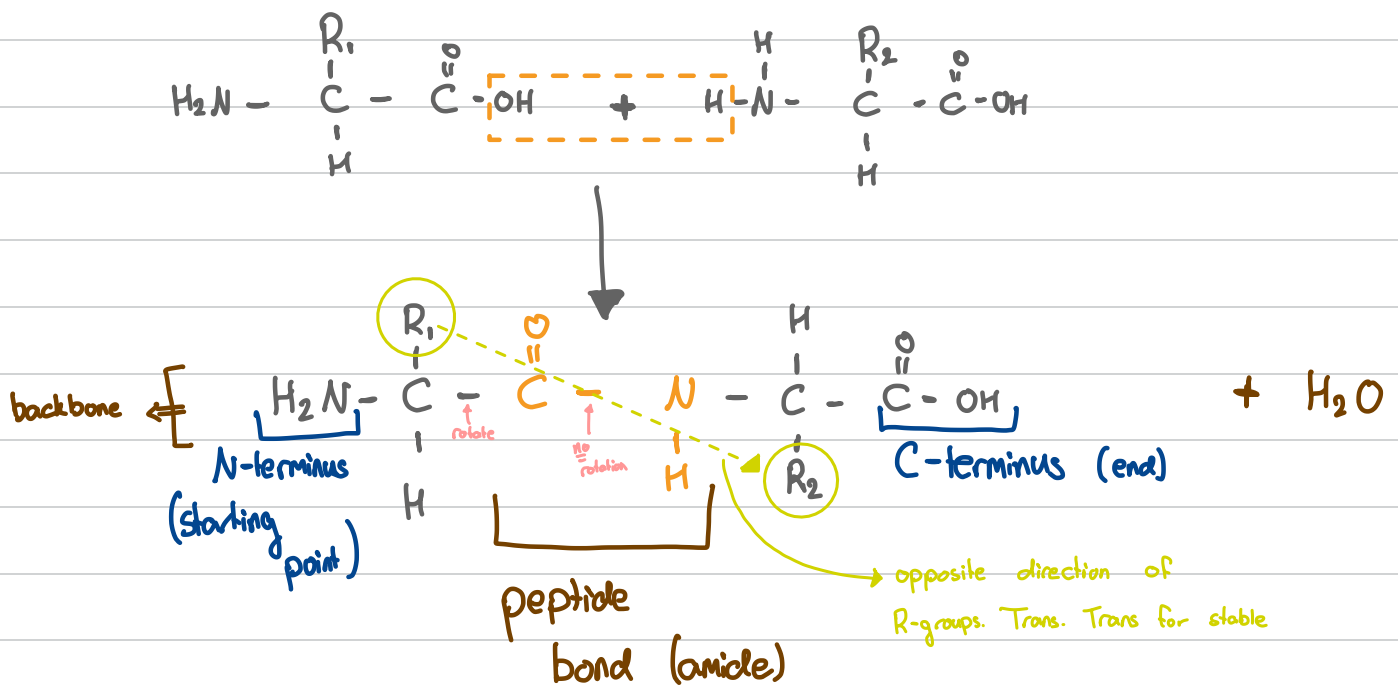 R₁ O H R₂ O
H₂N - C - C - OH + H - N - C - C - OH
H H
R₁ O H O
backbone H₂N - C - C - N - C - C - OH + H₂O
rotate no rotation
H H R₂
N-terminus
(starting
point)
C-terminus (end)
peptide
bond (amide)
opposite direction of
R-groups. Trans. Trans for stable